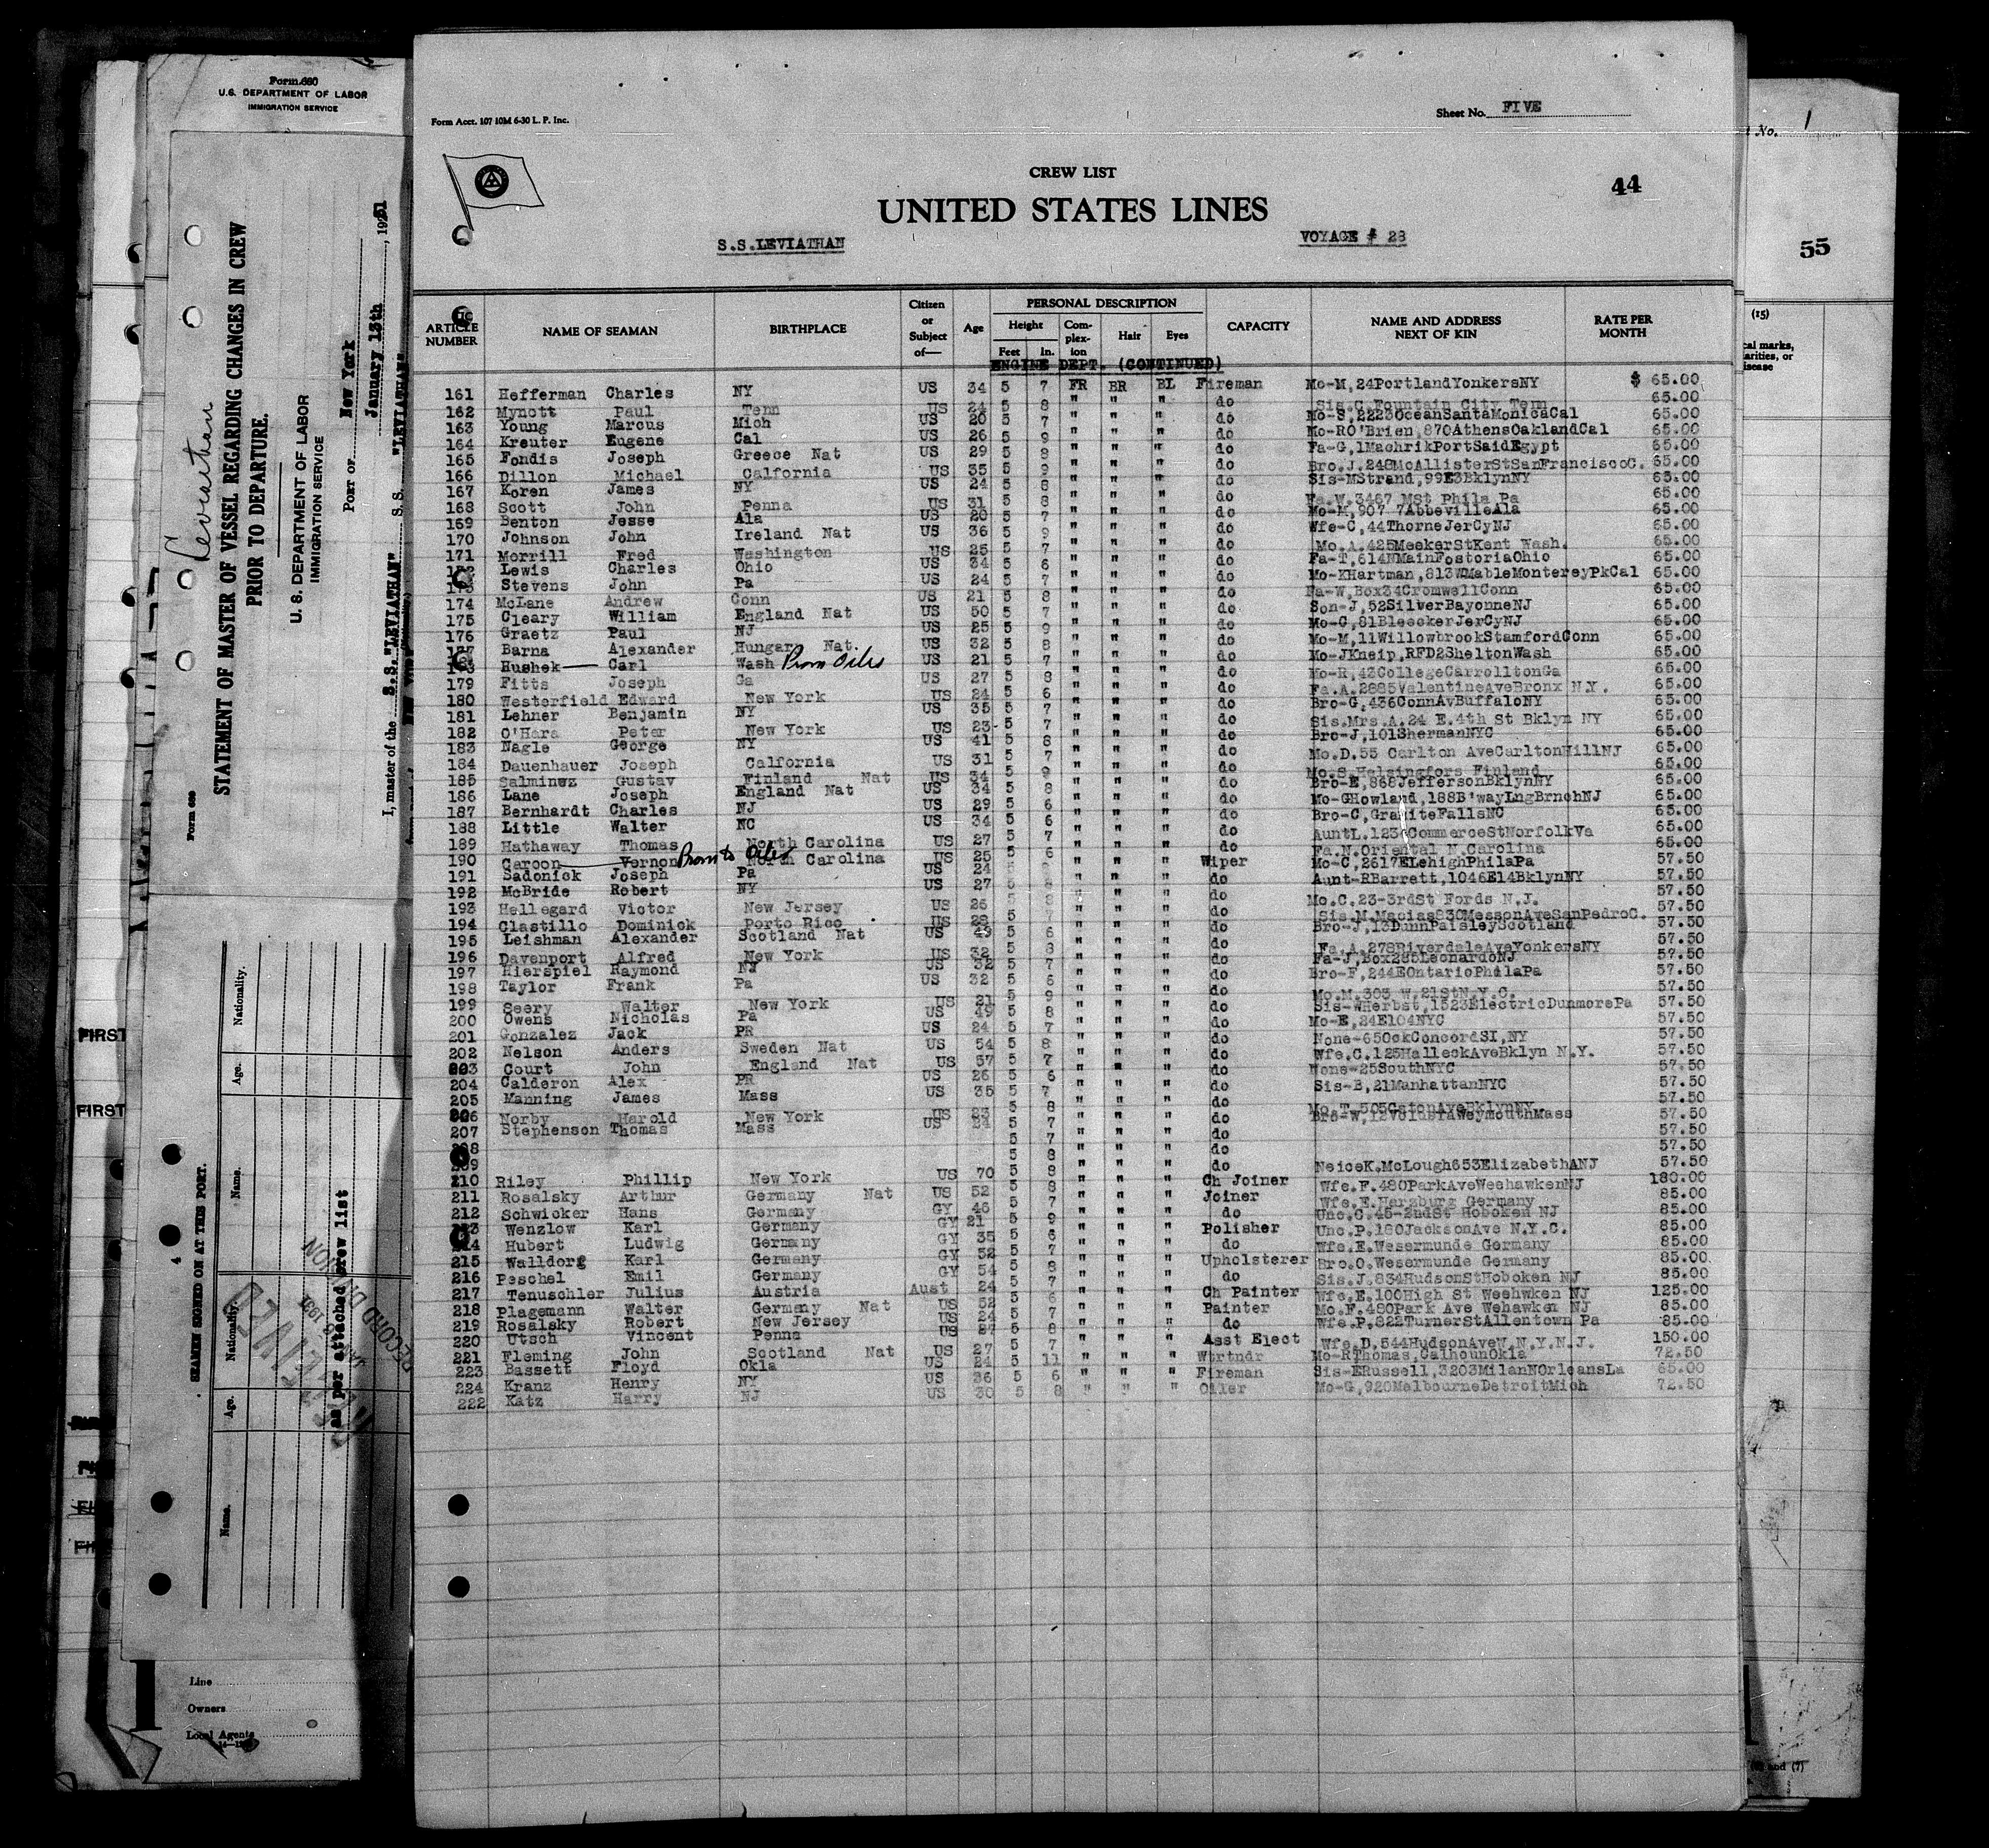 Form 680
U.S. DEPARTMENT OF LABOR
IMMIGRATION SERVICE
Leviathan
STATEMENT OF MASTER OF VESSEL REGARDING CHANGES IN CREW
PRIOR TO DEPARTURE.
U. S. DEPARTMENT OF LABOR
IMMIGRATION SERVICE
PORT OF New York
January 13th, 1931
I, master of the S.S."LEVIATHAN" S. S. "LEVIATHAN"
SEAMEN SIGNED ON AT THIS PORT.
Name. Age. Nationality. Name. Age. Nationality.
as per attached crew list
RECORD DIVISION
Line
Owners
Local Agents
FIRST
FIRST
Form Acct. 107 10M 6-30 L. P. Inc.
Sheet No. FIVE
CREW LIST
44
UNITED STATES LINES
S.S.LEVIATHAN VOYAGE # 28
ARTICLE NUMBER NAME OF SEAMAN BIRTHPLACE Citizen or Subject of— Age PERSONAL DESCRIPTION Height Feet In. Complexion Hair Eyes CAPACITY NAME AND ADDRESS NEXT OF KIN RATE PER MONTH
ENGINE DEPT. (CONTINUED)
161 Hefferman Charles NY US 34 5 7 FR BR BL Fireman Mo-M,24PortlandYonkersNY $ 65.00
162 Mynott Paul Tenn US 24 5 8 " " " do Sis.C.Fountain City Tenn 65.00
163 Young Marcus Mich US 20 5 7 " " " do Mo-S,2223OceanSantaMonicaCal 65.00
164 Kreuter Eugene Cal US 26 5 9 " " " do Mo-RO'Brien,870AthensOaklandCal 65.00
165 Fondis Joseph Greece Nat US 29 5 8 " " " do Fa-G,1MachrikPortSaidEgypt 65.00
166 Dillon Michael Calfornia US 35 5 9 " " " do Bro.J.248McAllisterStSanFranciscoC. 65.00
167 Koren James NY US 24 5 8 " " " do Sis-MStrand,99E3BklynNY 65.00
168 Scott John Penna US 31 5 8 " " " do Fa.W.3467 MSt Phila Pa 65.00
169 Benton Jesse Ala US 20 5 7 " " " do Mo-M,907 7AbbevilleAla 65.00
170 Johnson John Ireland Nat US 36 5 9 " " " do Wfe-C,44ThorneJerCyNJ 65.00
171 Morrill Fred Washington US 25 5 7 " " " do Mo.A.425MeekerStKent Wash. 65.00
Lewis Charles Ohio US 34 5 6 " " " do Fa-T,614NMainFostoriaOhio 65.00
173 Stevens John Pa US 24 5 7 " " " do Mo-KHartman,813WMableMontereyPkCal 65.00
174 McLane Andrew Conn US 21 5 8 " " " do Fa-W,Box34CromwellConn 65.00
175 Cleary William England Nat US 50 5 7 " " " do Son-J,52SilverBayonneNJ 65.00
176 Graetz Paul NJ US 25 5 9 " " " do Mo-C,81BleeckerJerCyNJ 65.00
Barna Alexander Hungar Nat. US 32 5 8 " " " do Mo-M,11WillowbrookStamfordConn 65.00
Hushek Carl Wash Prom Oiler US 21 5 7 " " " do Mo-JKneip,RFD2SheltonWash 65.00
179 Fitts Joseph Ga US 27 5 8 " " " do Mo-R,43CollegeCarrolltonGa 65.00
180 Westerfield Edward New York US 24 5 6 " " " do Fa.A.2885ValentineAveBronx N.Y. 65.00
181 Lehner Benjamin NY US 35 5 7 " " " do Bro-G,436ConnAvBuffaloNY 65.00
182 O'Hara Peter New York US 23 5 7 " " " do Sis.Mrs.A.24 E.4th St Bklyn NY 65.00
183 Nagle George NY US 41 5 8 " " " do Bro-J,101ShermanNYC 65.00
184 Dauenhauer Joseph Calfornia US 31 5 7 " " " do Mo.D.55 Carlton AveCarltonHillNJ 65.00
185 Salminez Gustav Finland Nat US 34 5 9 " " " do Mo.S.Helsingfors Finland 65.00
186 Lane Joseph England Nat US 34 5 8 " " " do Bro-E,868JeffersonBklynNY 65.00
187 Bernhardt Charles NJ US 29 5 6 " " " do Mo-GHowland,188B'wayLngBrnchNJ 65.00
188 Little Walter NC US 34 5 6 " " " do Bro-C,GraniteFallsNC 65.00
189 Hathaway Thomas North Carolina US 27 5 7 " " " do AuntL.123 CommerceStNorfolkVa 65.00
190 Caroon Vernon Prom to Oiler North Carolina US 25 5 6 " " " do Fa.N.Oriental N.Carolina 65.00
191 Sadonick Joseph Pa US 24 " " " Wiper Mo-C,2617ELehighPhilaPa 57.50
192 McBride Robert NY US 27 5 8 " " " do Aunt-RBarrett,1046E14BklynNY 57.50
193 Hellegard Victor New Jersey US 25 5 8 " " " do Mo.C.23-3rdSt Fords N.J. 57.50
194 Clastillo Dominick Porto Rico US 28 5 7 " " " do Sis.M.Macias830MessonAveSanPedroC. 57.50
195 Leishman Alexander Scotland Nat US 43 5 6 " " " do Bro-J,13DunnPaisleyScotland 57.50
196 Davenport Alfred New York US 32 5 8 " " " do Fa.A.278RiverdaleAveYonkersNY 57.50
197 Hierspiel Raymond NJ US 32 5 7 " " " do Fa-J,Box285LeonardoNJ 57.50
198 Taylor Frank Pa US 32 5 6 " " " do Bro-F,244EOntarioPhilaPa 57.50
199 Seery Walter New York US 21 5 9 " " " do Mo.M.303 W.21StN.Y.C. 57.50
200 Owens Nicholas Pa US 49 5 8 " " " do Sis-WHerbst,1523ElectricDunmorePa 57.50
201 Gonzalez Jack PR US 24 5 7 " " " do Mo-E,24E104NYC 57.50
202 Nelson Anders Sweden Nat US 54 5 8 " " " do None-65OckConcordSI,NY 57.50
203 Court John England Nat US 57 5 7 " " " do Wfe.C.125HalleckAveBklyn N.Y. 57.50
204 Calderon Alex PR US 26 5 6 " " " do None-25SouthNYC 57.50
205 Manning James Mass US 35 5 7 " " " do Sis-B,21ManhattanNYC 57.50
206 Norby Harold New York US 23 5 8 " " " do Mo.T.505GatonAveBklynNY 57.50
207 Stephenson Thomas Mass US 24 5 7 " " " do 57.50
5 7 " " " do 57.50
209 5 8 " " " do NeiceK.McLough653ElizabethANJ 57.50
210 Riley Phillip New York US 70 5 8 " " " Ch Joiner Wfe.F.480ParkAveWeehawkenNJ 180.00
211 Rosalsky Arthur Germany Nat US 52 5 8 " " " Joiner Wfe.E.Harzburg Germany 85.00
212 Schwicker Hans Germany GY 46 5 7 " " " do Unc.C.45-2ndSt Hoboken NJ 85.00
Wenzlow Karl Germany GY 21 5 9 " " " Polisher Unc.P.180JacksonAve N.Y.C. 85.00
214 Hubert Ludwig Germany GY 35 5 6 " " " do Wfe.E.Wesermunde Germany 85.00
215 Walldorg Karl Germany GY 52 5 7 " " " Upholsterer Bro.O.Wesermunde Germany 85.00
216 Peschel Emil Germany GY 54 5 8 " " " do Sis.J.834HudsonStHoboken NJ 85.00
217 Tenuschler Julius Austria Aust 24 5 7 " " " Ch Painter Wfe.E.100High St Weehwken NJ 125.00
218 Plagemann Walter Germany Nat US 52 5 6 " " " Painter Mo.F.480Park Ave Wehawken NJ 85.00
219 Rosalsky Robert New Jersey US 24 5 7 " " " do Wfe.P.822TurnerStAllentown Pa 85.00
220 Utsch Vincent Penna US 27 5 8 " " " Asst Elect Wfe.D.544HudsonAveW.N.Y.N.J. 150.00
221 Fleming John Scotland Nat US 27 5 7 " " " Wtrtndr Mo-RThomas,CalhounOkla 72.50
223 Bassett Floyd Okla US 24 5 11 " " " Fireman Sis-ERussell,3203MilanNOrleansLa 65.00
224 Kranz Henry NY US 36 5 6 " " " Oiler Mo-G,920MelbourneDetroitMich 72.50
222 Katz Harry NJ US 30 5 8 " " "
No. 1
55
(15)